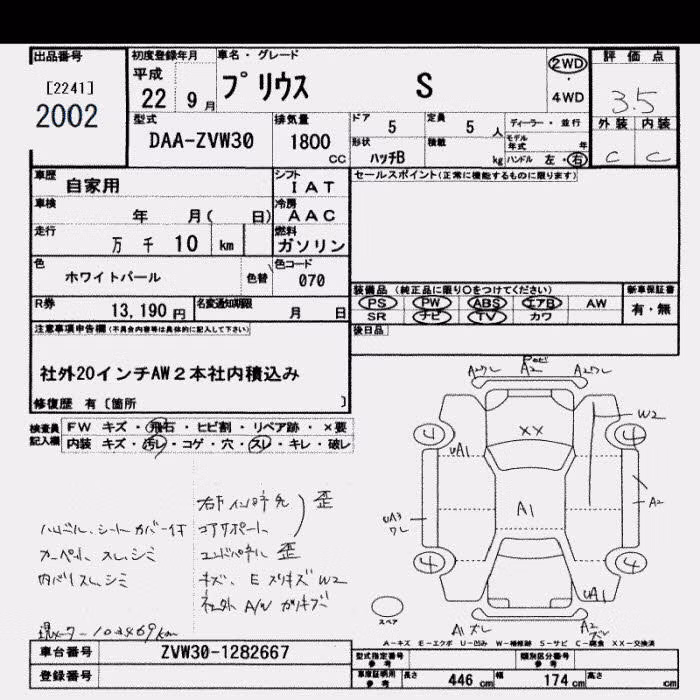 出品番号 初度登録年月 車名・グレード 評価点
[2241]
2002
平成
22 9月
プリウス S
2WD
・
4WD
3.5
外装 内装
C C
型式 排気量 ドア 定員 ディーラー・並行
DAA-ZVW30 1800 CC
5 5人
モデル年式 年
形状 積載
ハッチB kg ハンドル 左・右
車歴 自家用 シフト IAT
セールスポイント(正常に機能するものに限ります)
車検 年 月( 日) 冷房 AAC
走行 万 千 10 km 燃料 ガソリン
色 ホワイトパール 色替 色コード 070
装備品 (純正品に限り○をつけてください) 新車保証書
PS PW ABS エアB AW
SR ナビ TV カワ
有・無
R券 13,190円 名変通知期限 月 日
後日品
注意事項申告欄(不具合内容等は具体的に記入して下さい)
社外20インチAW2本社内積込み
修復歴 有〔箇所 〕
検査員記入欄
FW キズ・飛石・ヒビ割・リペア跡・×要
内装 キズ・汚レ・コゲ・穴・スレ・キレ・破レ
A2ワレ A2 A2ワレ
4 4
XX
W2
uA1
A1
A2
uA3
ワレ
4 4
uA1
A1ズレ A2
ズレ
スペア
ハンドル、シートカバー付
カーペット スレ、シミ
内バリスレ、シミ
右下インパネ先 歪
コアサポート
エンドパネル 歪
キズ、Eスリキズ W2
社外A/W ガリキズ
現メーター 102469km
A-キズ E-エクボ U-凹み W-補修跡 S-サビ C-腐食 XX-交換済
車台番号 ZVW30-1282667
登録番号
型式指定番号 参考 類別区分番号 参考
車庫証明用 参考 長さ 446cm 幅 174cm 高さ cm